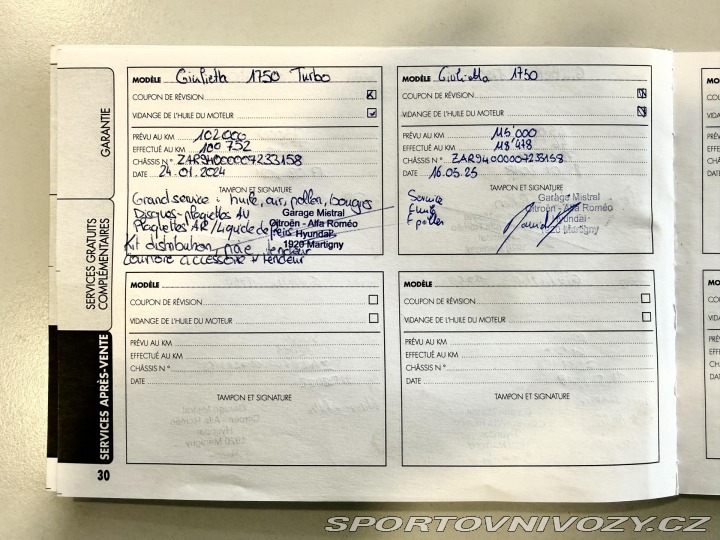 GARANTIE
SERVICES GRATUITS
COMPLÉMENTAIRES
SERVICES APRÈS-VENTE
30
MODÈLE Giulietta 1750 Turbo
COUPON DE RÉVISION
VIDANGE DE L'HUILE DU MOTEUR
PRÉVU AU KM 102000
EFFECTUÉ AU KM 100 752
CHÂSSIS N° ZAR94000007233158
DATE 24.01.2024
TAMPON ET SIGNATURE
Grand service : huile, air, pollen, bougies
Disques-plaquettes AV
Plaquettes AR/Liquide de freins
Kit distribution,
courroie accessoire + tendeur
Garage Mistral
Citroën - Alfa Roméo
Hyundai
1920 Martigny
MODÈLE Giulietta 1750
COUPON DE RÉVISION
VIDANGE DE L'HUILE DU MOTEUR
PRÉVU AU KM 115'000
EFFECTUÉ AU KM 118'478
CHÂSSIS N° ZAR94000007233158
DATE 16.05.25
TAMPON ET SIGNATURE
Service
pollen
Garage Mistral
Citroën - Alfa Roméo
Hyundai
1920 Martigny
MODÈLE
COUPON DE RÉVISION
VIDANGE DE L'HUILE DU MOTEUR
PRÉVU AU KM
EFFECTUÉ AU KM
CHÂSSIS N°
DATE
TAMPON ET SIGNATURE
MODÈLE
COUPON DE RÉVISION
VIDANGE DE L'HUILE DU MOTEUR
PRÉVU AU KM
EFFECTUÉ AU KM
CHÂSSIS N°
DATE
TAMPON ET SIGNATURE
SPORTOVNIVOZY.CZ